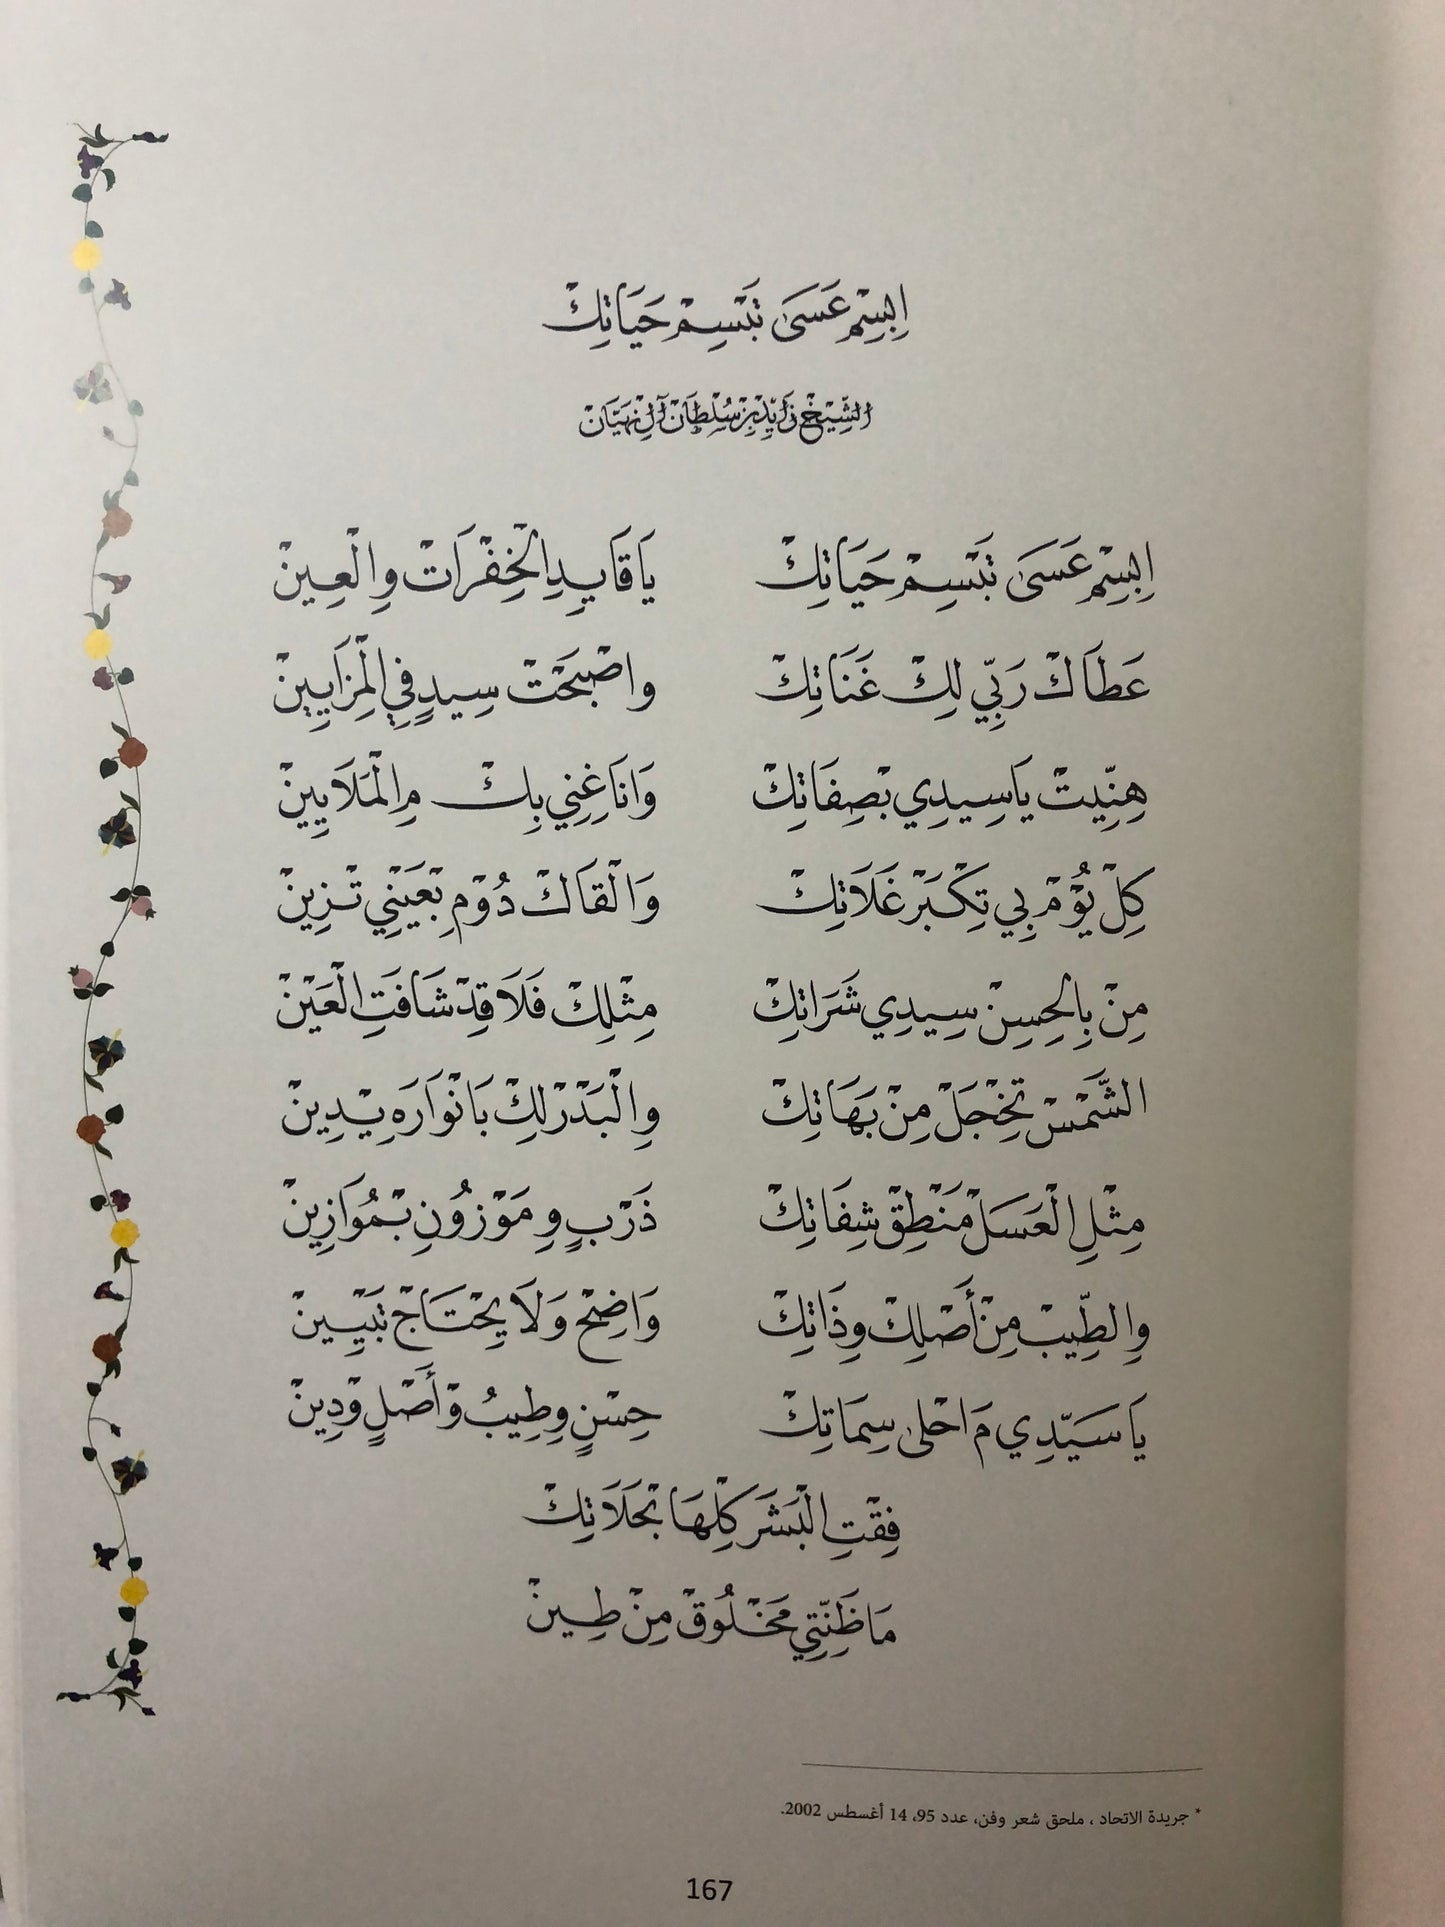 اِبسِمْ عَسَىٰ تَبْسِمْ حَيَاتِكْ
الشِّيْخْ زَايِدْ بِنْ سُلْطَانْ آلْ نِهَيَّانْ
اِبسِمْ عَسَىٰ تَبْسِمْ حَيَاتِكْ يَا قَايِدِ الْخِفْرَاتْ وِالْعِينْ
عَطَاكْ رَبِّي لِكْ غَنَاتِكْ واصْبَحْتْ سِيدٍ فِي الْمِزَايِينْ
هِنِّيتْ يَا سِيدِي بْصِفَاتِكْ وَانَا غِنِي بِكْ مِ الْمَلَايِينْ
كِلْ يُوْمْ بِي تِكْبَرْ غَلَاتِكْ وَالْقَاكْ دُوْمٍ بْعَيْنِي تْزِينْ
مِنْ بِالْحِسِنْ سِيدِي شَرَاتِكْ مِثْلِكْ فَلَا قِدْ شَافَتِ الْعَيْنْ
الشَّمْسْ تَخْجَلْ مِنْ بَهَاتِكْ وِالْبَدْرْ لِكْ بَانْوَارَهْ يِدِينْ
مِثْلِ الْعَسَلْ مَنْطِقْ شِفَاتِكْ ذَرْبٍ وِمَوْزُونٍ بْمُوَازِينْ
وِالطِّيبْ مِنْ أَصْلِكْ وِذَاتِكْ وَاضِحْ وَلَا يِحْتَاجْ تَبْيِينْ
يَا سَيِّدِي مَ احْلَىٰ سِمَاتِكْ حِسْنٍ وِطِيبُ وْأَصْلٍ وْدِينْ
فِقْتِ الْبَشَرْ كِلْهَا بْحَلَاتِكْ
مَا ظَنِّتِي مَخْلُوقْ مِنْ طِينْ
* جريدة الاتحاد ، ملحق شعر وفن، عدد 95، 14 أغسطس 2002.
167